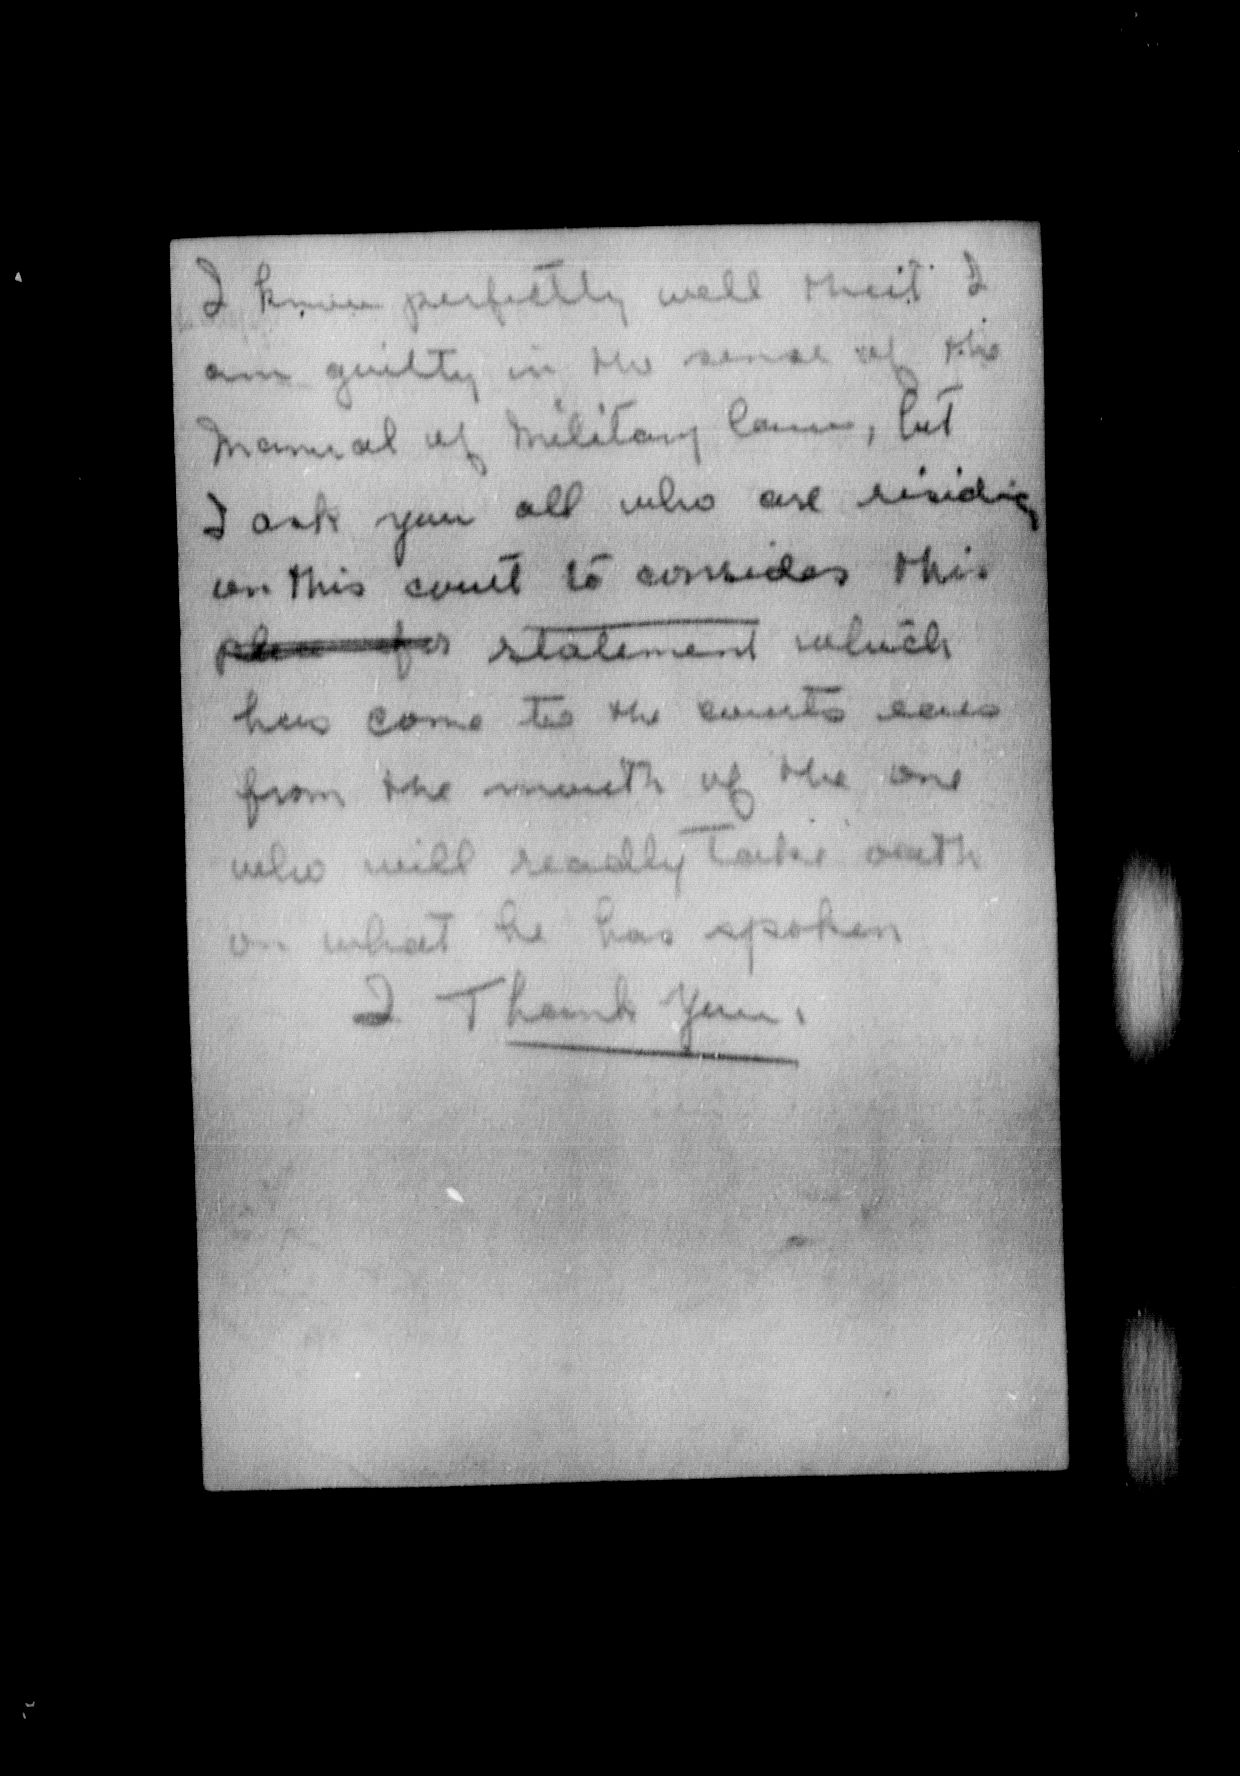 I know perfectly well that I
am guilty in the sense of the
Manual of Military Law, but
I ask you all who are risiding
on this court to consider this
statement which
has come to the courts ears
from the mouth of the one
who will readly take oath
on what he has spoken
I Thank You.